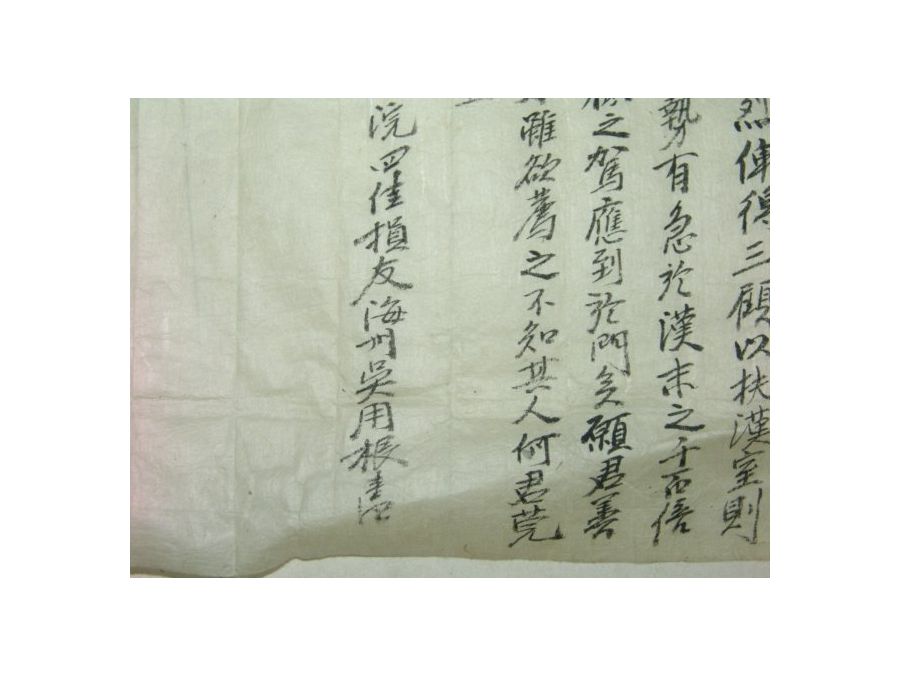 烈俾得三顧以扶漢室則
勢有急於漢末之千百倍
之駕應到於門矣願君善
雖欲薦之不知其人何君荒
浣四佳損友海州吳用根